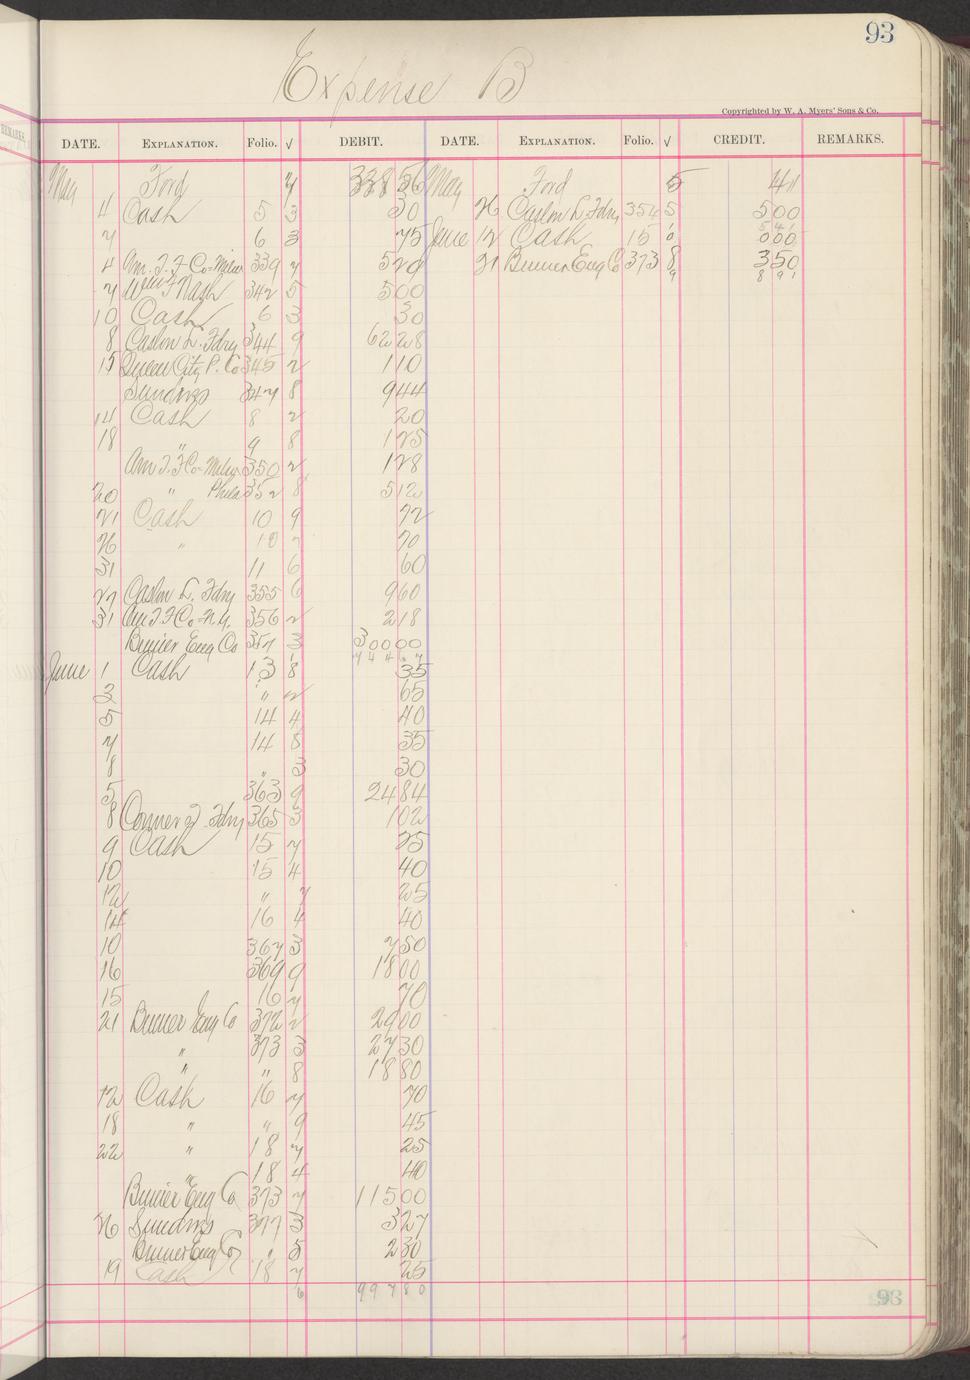 93
Expense B
Copyrighted by W. A. Myers' Sons & Co.
DATE. EXPLANATION. Folio. √ DEBIT. DATE. EXPLANATION. Folio. √ CREDIT. REMARKS.
May Ford 7 338 56 May Ford 5 41
4 Cash 5 3 30 26 Caslon L. Fdry 354 5 5 00
7 6 3 75 June 12 Cash 15
4 Am. T. F Co-Milw 339 7 5 20 21 Binner Eng Co 373 8 3 50
7 Wm F Nash 342 5 5 00 9 8 91
10 Cash 6 3 30
8 Caslon L. Fdry 344 9 62 28
15 Queen City P. Co 345 2 1 10
Sundries 347 8 9 44
14 Cash 8 2 20
18 " 9 8 1 25
Am T. F Co-Milw 350 2 1 28
20 " Phila 352 8 5 12
21 Cash 10 9 72
26 " 10 7 70
31 11 6 60
27 Caslon L. Fdry 355 6 9 60
31 Am T F Co-N.Y. 356 2 2 18
Binner Eng Co 357 3 300 00
June 1 Cash 13 8 35
3 " 2 65
5 14 4 40
7 14 8 35
8 " 3 30
5 363 9 24 84
8 Conner T. Fdry 365 3 1 02
9 Cash 15 7 25
10 15 4 40
12 " 7 25
14 16 4 40
10 367 3 7 50
16 369 9 18 00
15 16 7 70
21 Binner Eng Co 372 2 29 00
" 373 3 27 30
" " 8 18 80
12 Cash 16 7 70
18 " " 9 45
22 " 18 7 25
" 18 4 40
Binner Eng Co 373 7 115 00
26 Sundries 377 3 3 27
Binner Eng Co " 5 2 30
19 Cash 18 7 25
6 997 80
93